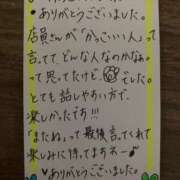 ・ありがとうございました。
店員さんが「かっこいい人」って
言ってて どんな人なのかな。
って思ってたけど、でした。
とても話しやすい方で、
楽しかったです!!!
「またね」って最後言ってくれて
楽しみに待ってまちネー♪
♥ありがとうございました。